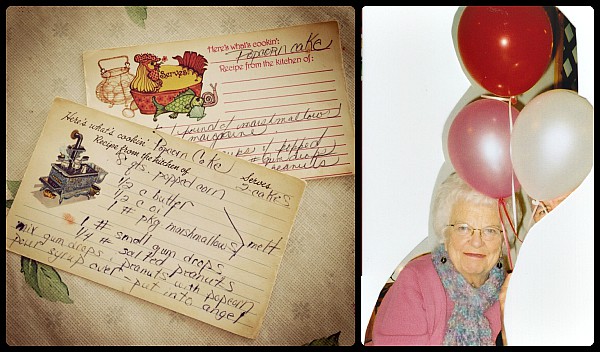 Here's what's cookin': Popcorn cake
Recipe from the kitchen of:
Serves:
1 pound of marshmallows
margarine
cups of popped
# gum drops
peanuts
Here's what's cookin' Popcorn Cake
Serves 2-cakes
Recipe from the kitchen of
8 qts. popped corn
1/2 c butter
1/2 c oil
1 # pkg marshmallows melt
1 # small gum drops
1/4 # salted peanuts
mix gum drops, peanuts with popcorn
pour syrup over - put into angel